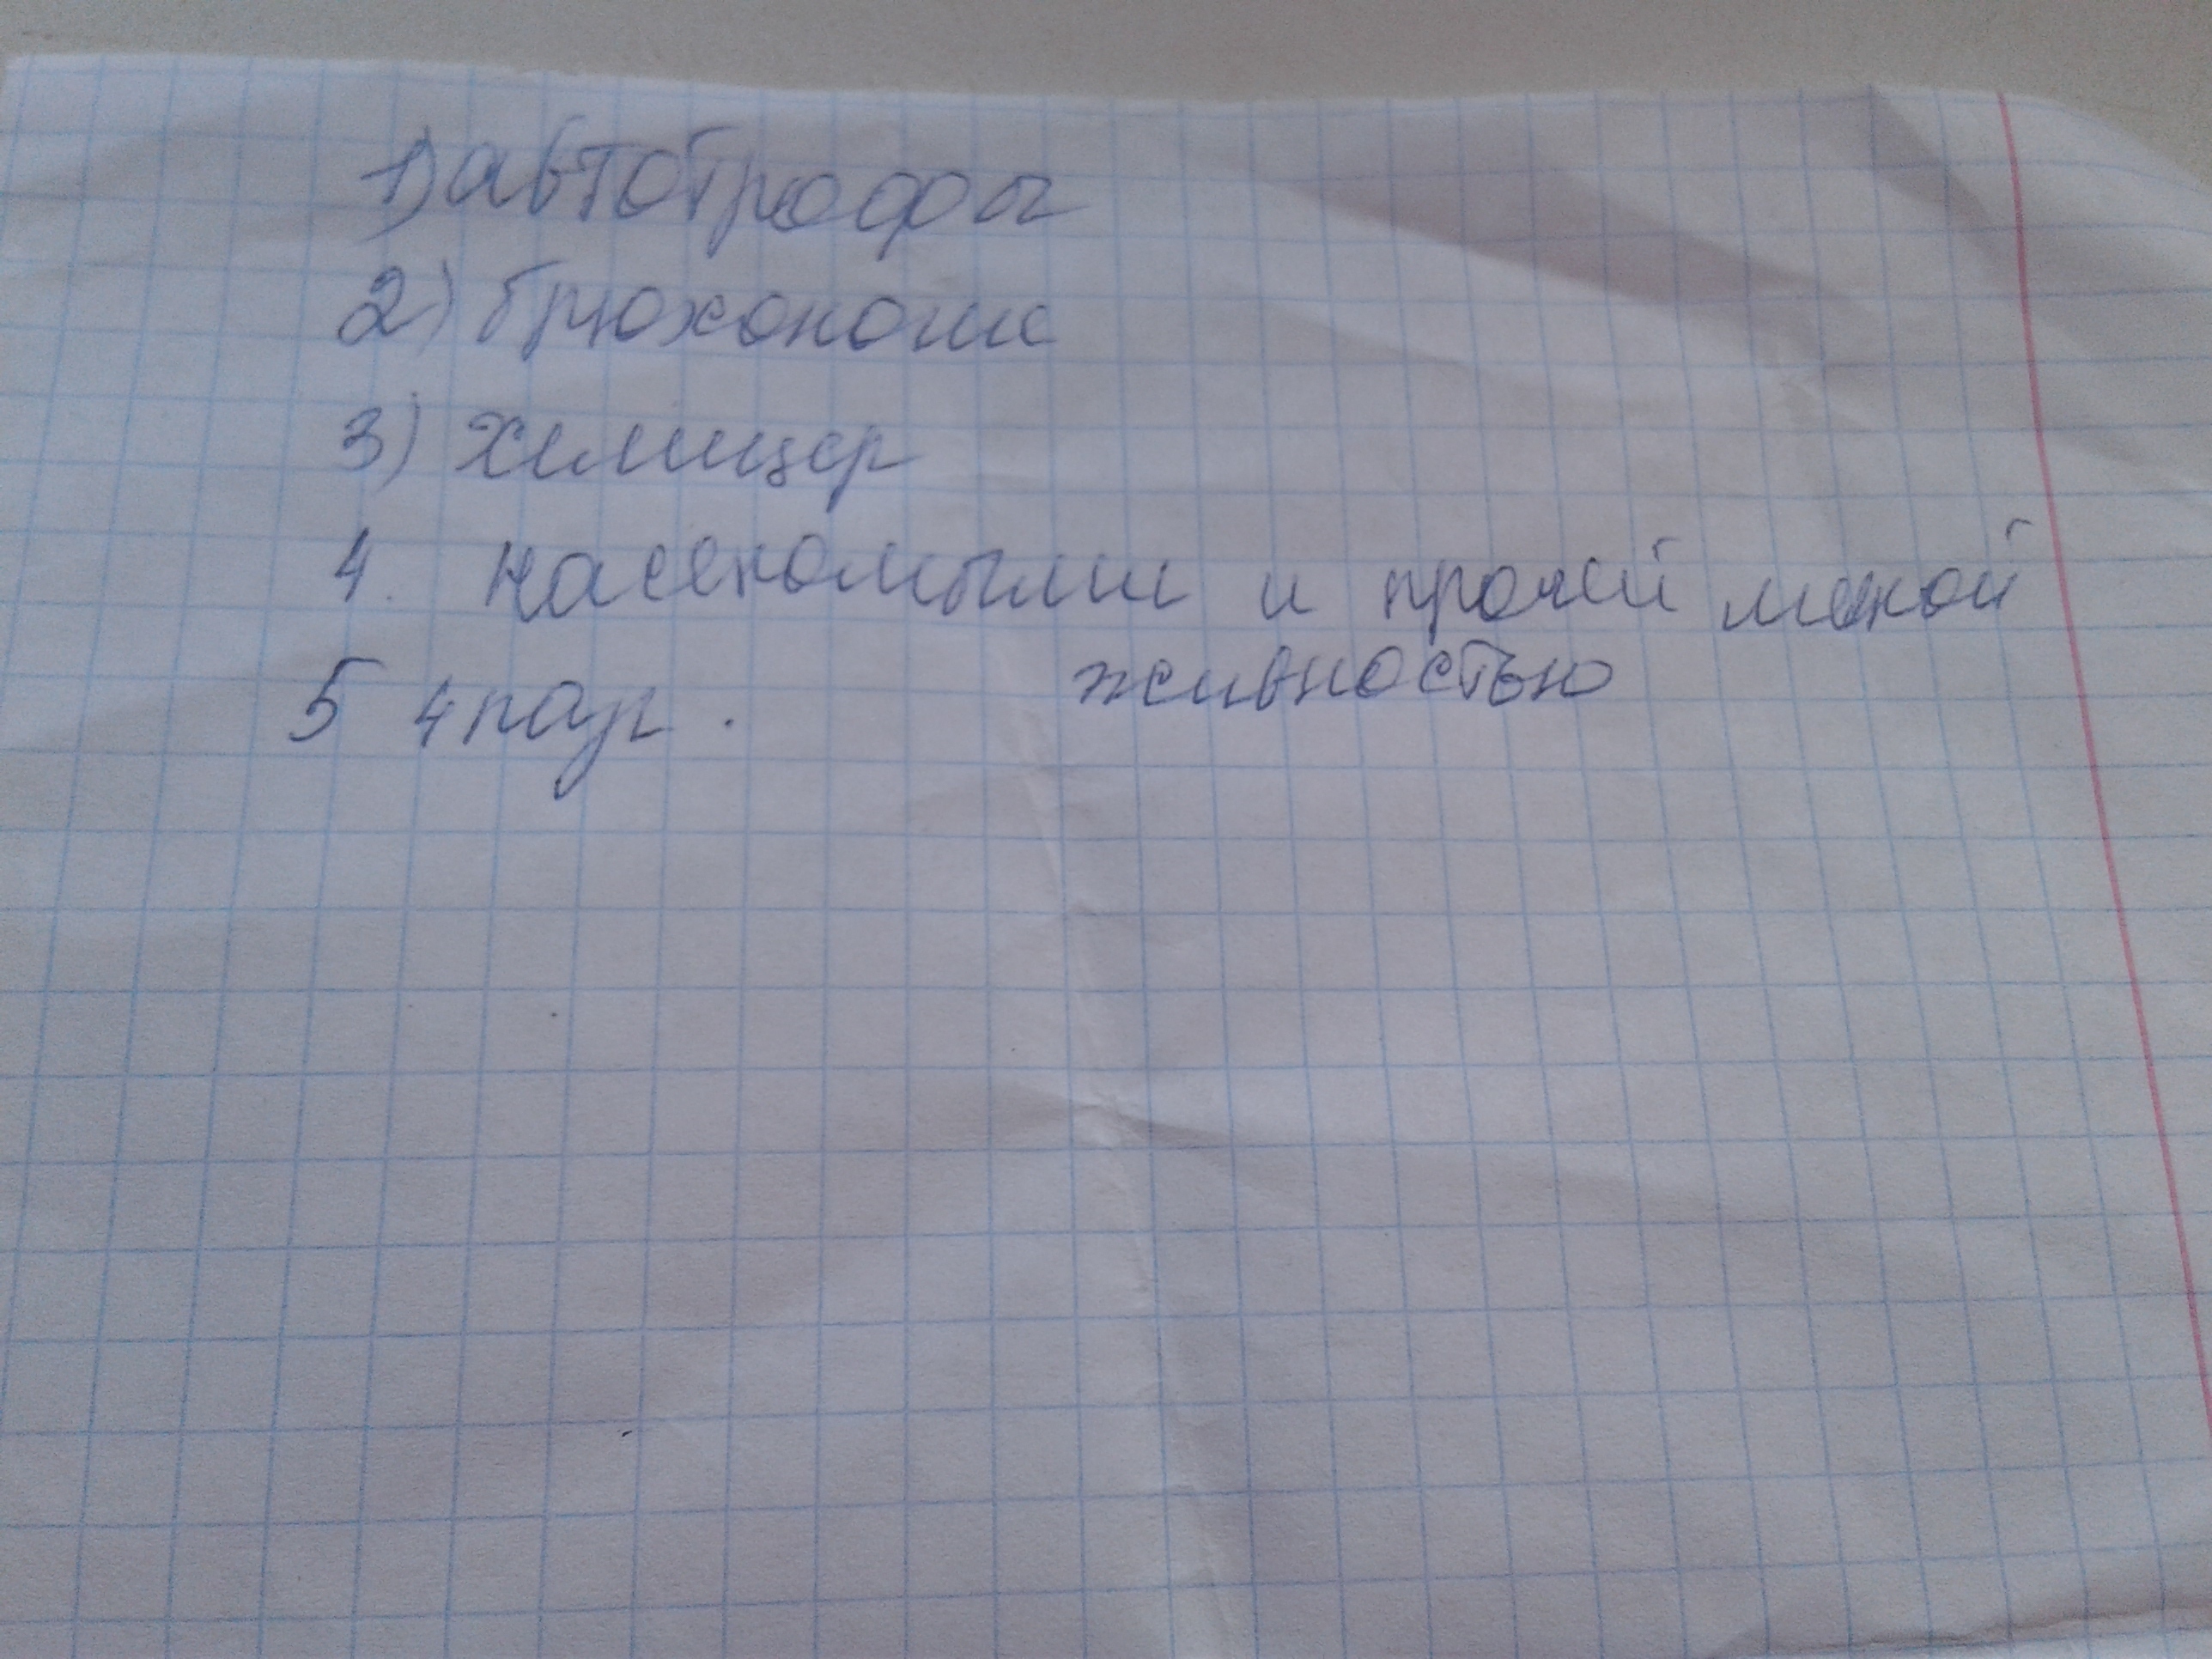 1) автотрофы
2) брюхоногие
3) хелицер
4. насекомыми и прочей мелкой
живностью
5 4 пар .